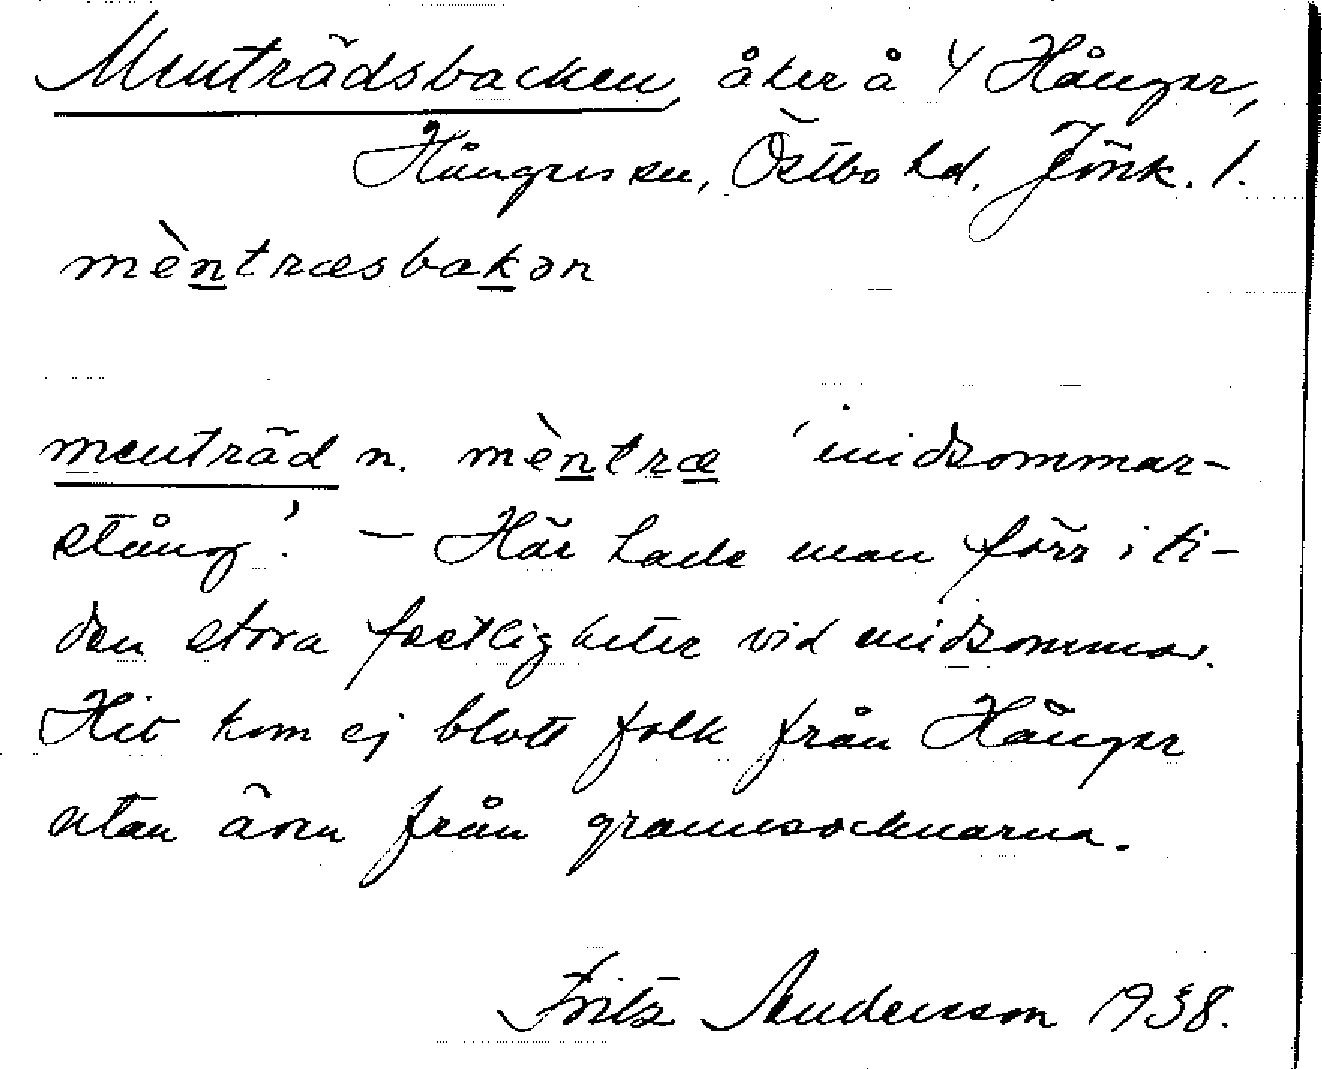 Menträdsbacken, åker å 4 Hånger,
Hångers sn, Östbo hd, Jönk. l.
mèntræsbakən
menträd n. mèntræ 'midsommar-
stång'. – Här hade man förr i ti-
den stora festligheter vid midsommar.
Hit kom ej blott folk från Hånger
utan även från grannsocknarna.
Fritz Andersson 1938.